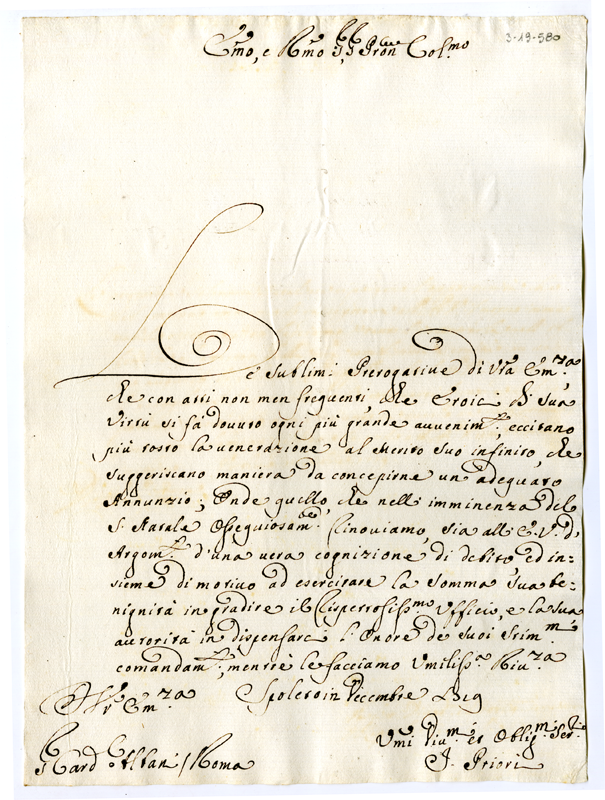 3-19-580
Emo, e Rmo Sig Pron Colmo
Le Sublimi Prerogative di Vra Emza
che con atti non men frequenti, che Eroici di Sua
Virtù si fà dovuto ogni più grande avvenimto, eccitano
più tosto la venerazione al Merito Suo infinito, che
suggeriscano maniera da concepirne un adeguato
Annunzio; Onde quello, che nell imminenza del
S. Natale Ossequiosamte Rinoviamo, sia all E. V. d'
Argomto d'una vera cognizione di debito, ed in=
sieme di motivo ad esercitare la somma sua be=
nignità in gradire il Rispettosissmo Ufficio, e la sua
autorità in dispensarci l'Onore de suoi stimmi
comandamti; mentre le facciamo Umilissa Rivza
Di Vr Emza Spoleto in Decembre
Umi Divmi et Obligmi Serri
Sr Card Albani / Roma
I Priori